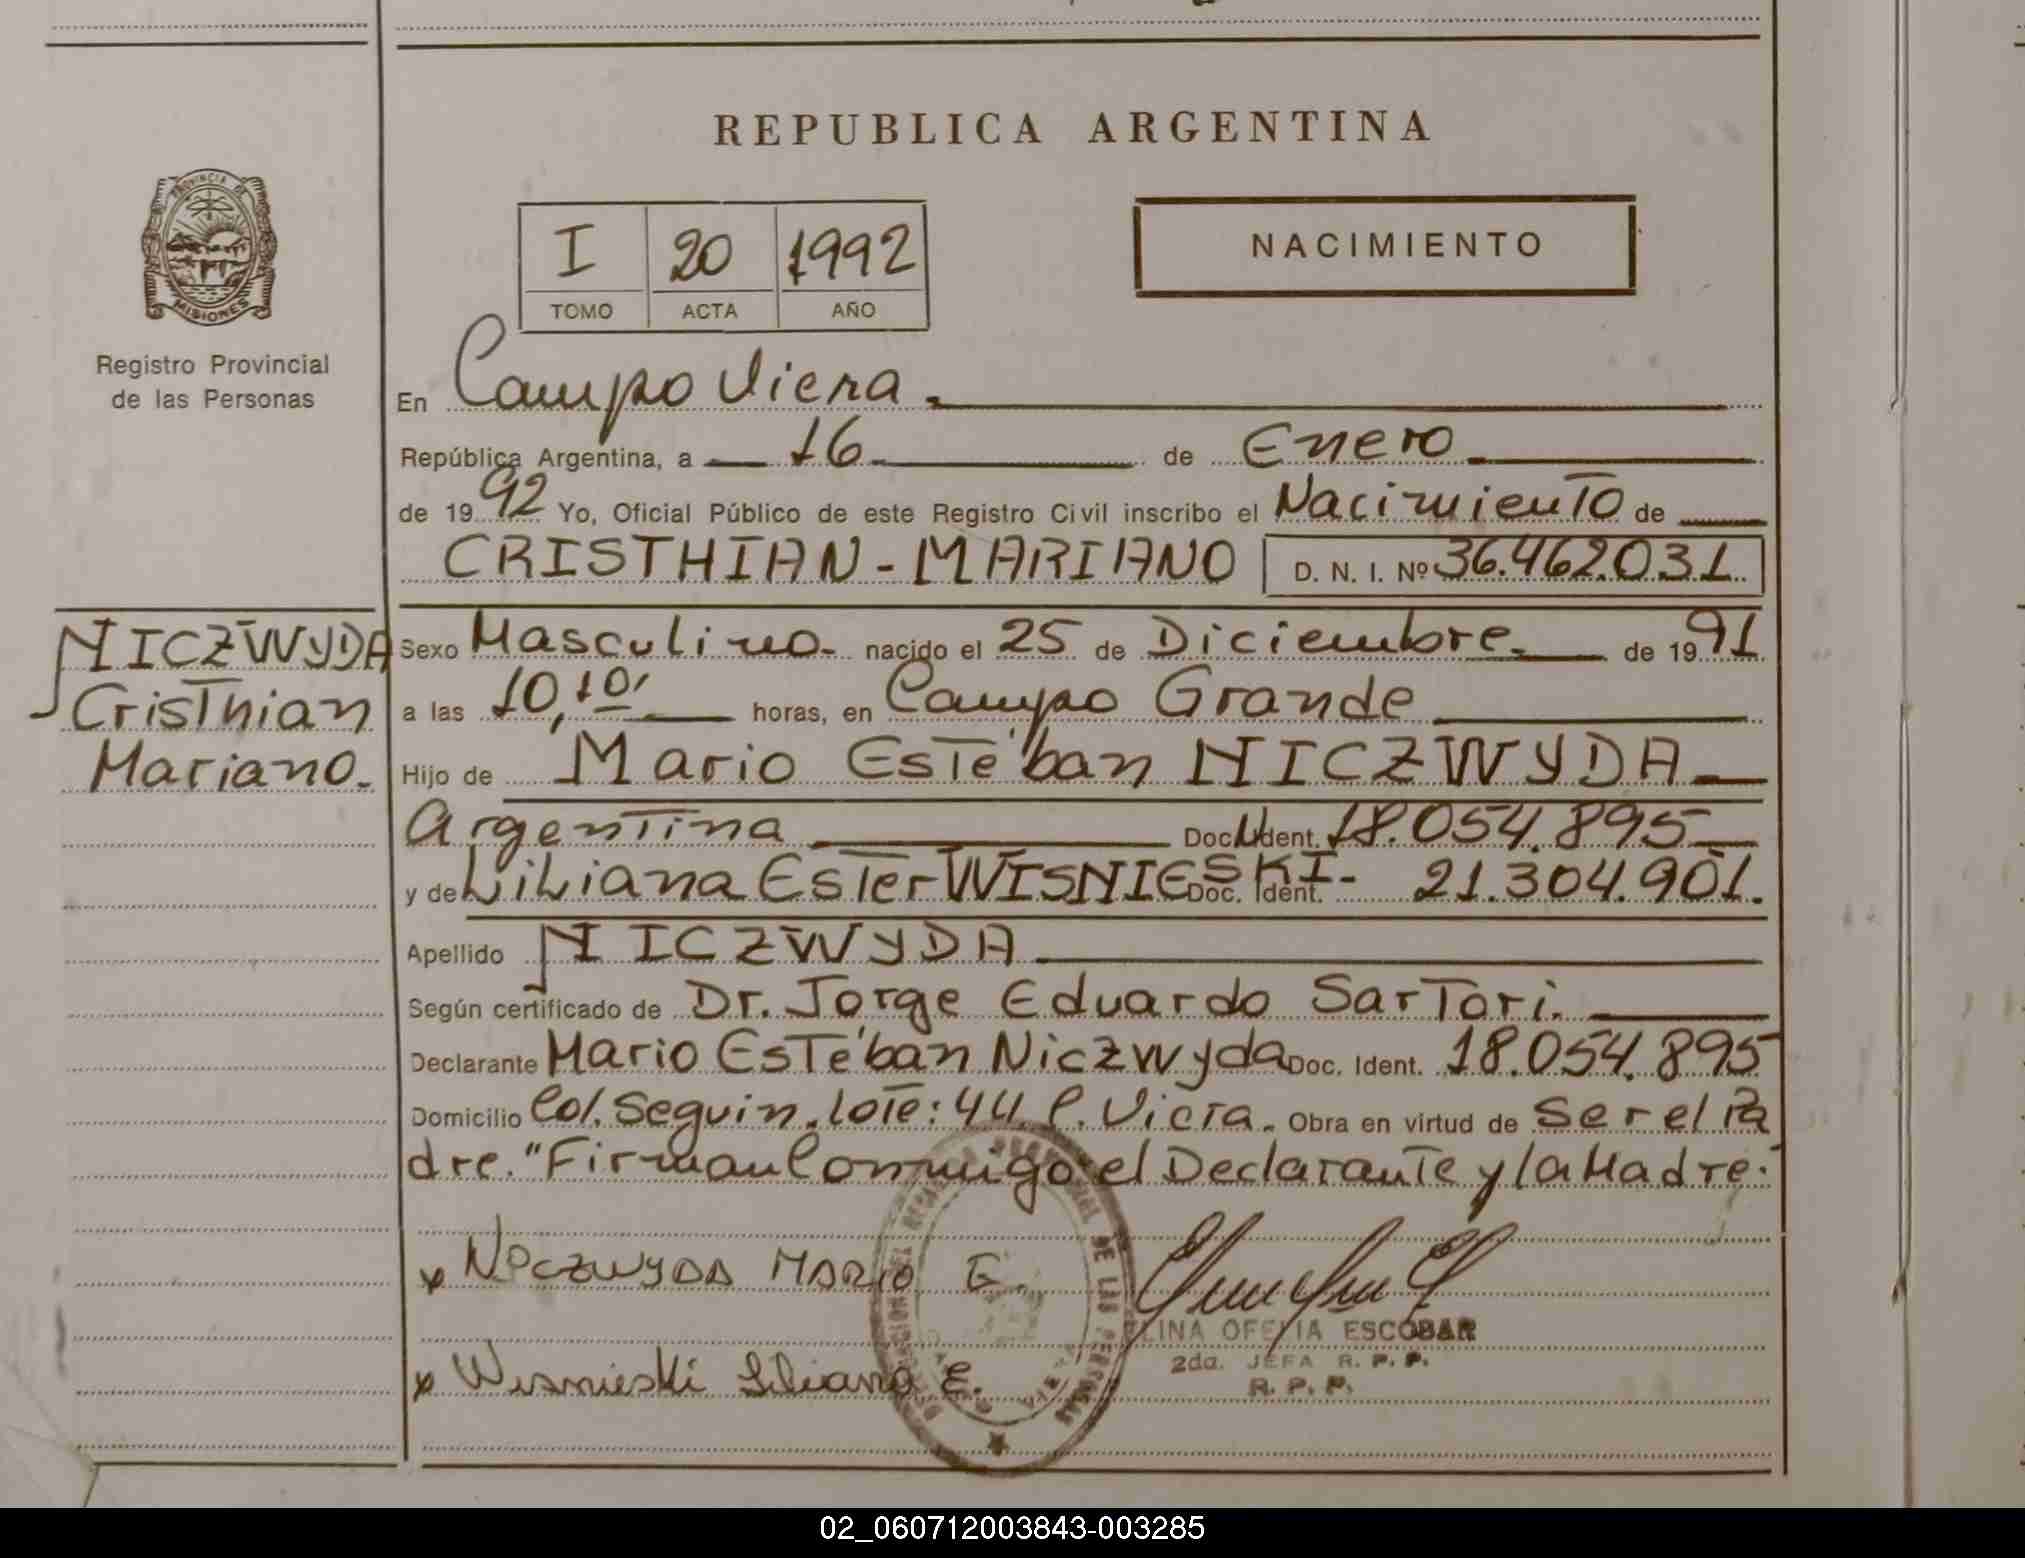 REPUBLICA ARGENTINA
PROVINCIA DE
MISIONES
Registro Provincial
de las Personas
I 20 1992
TOMO ACTA AÑO
NACIMIENTO
En Campo Viera.
República Argentina, a 16 de Enero
de 1992 Yo, Oficial Público de este Registro Civil inscribo el Nacimiento de
CRISTHIAN - MARIANO D. N. I. Nº 36.462.031
NICZWYDA
Cristhian
Mariano.
Sexo Masculino. nacido el 25 de Diciembre. de 1991
a las 10,10, horas, en Campo Grande
Hijo de Mario Estéban NICZWYDA
Argentina Doc. Ident. 18.054.895
y de Liliana Ester WISNIESKI - Doc. Ident. 21.304.901.
Apellido NICZWYDA
Según certificado de Dr. Jorge Eduardo Sartori.
Declarante Mario Estéban Niczwyda Doc. Ident. 18.054.895
Domicilio Col. Seguin. lote: 44 C. Viera. Obra en virtud de Ser el Pa
dre. "Firman Conmigo el Declarante y la Madre.
x NICZWYDA MARIO E.
x Wisnieski Liliana E.
ELINA OFELIA ESCOBAR
2da. JEFA R. P. P.
R. P. P.
02_060712003843-003285